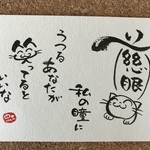 慈眼
私の瞳に
うつる
あなたが
笑ってると
いいな